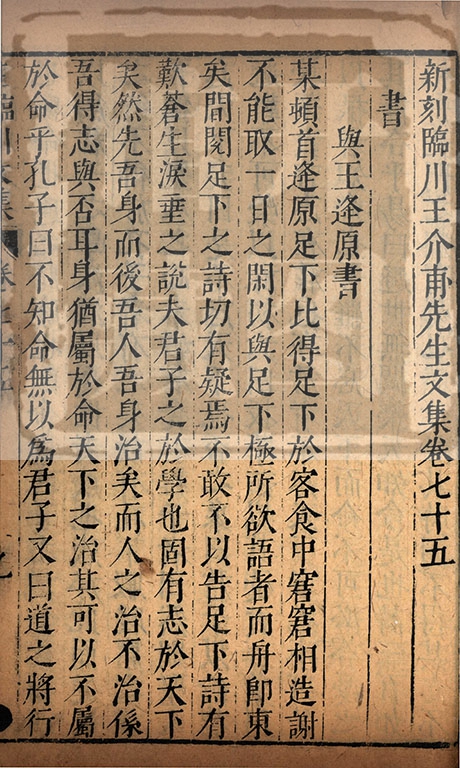 新刻臨川王介甫先生文集卷七十五
書
與王逢原書
某頓首逢原足下比得足下於客食中窘窘相造謝
不能取一日之閑以與足下極所欲語者而舟卽東
矣間閱足下之詩切有疑焉不敢不以告足下詩有
歎蒼生淚垂之說夫君子之於學也固有志於天下
矣然先吾身而後吾人吾身治矣而人之治不治係
吾得志與否耳身猶屬於命天下之治其可以不屬
於命乎孔子曰不知命無以爲君子又曰道之將行